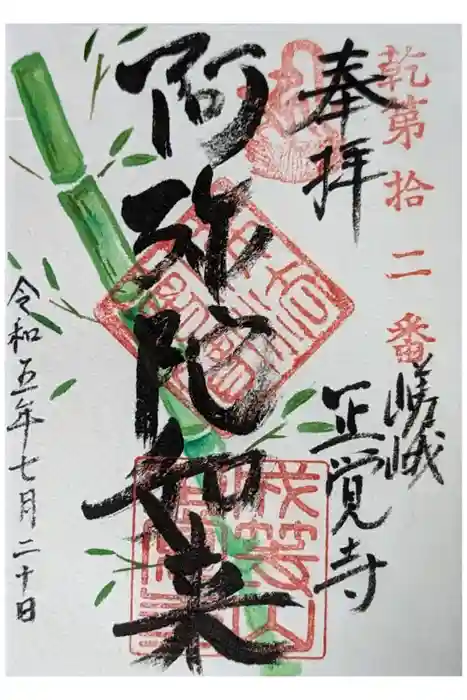 乾第拾二番
奉拝
嵯峨
正覚寺
阿弥陀如来
令和五年七月二十日